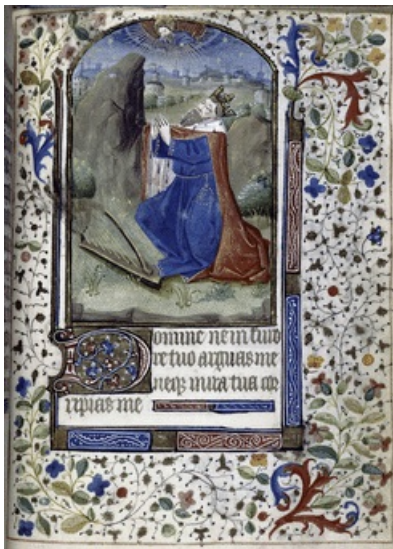 Domine ne in furo
re tuo arguas me
neqz in ira tua cor
ripias me